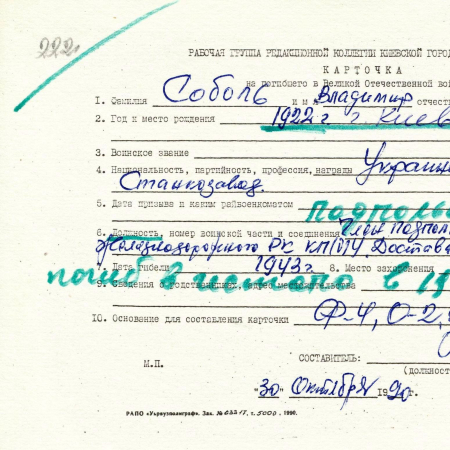 222
РАБОЧАЯ ГРУППА РЕДАКЦИОННОЙ КОЛЛЕГИИ КИЕВСКОЙ ГОРО
КАРТОЧКА
на погибшего в Великой Отечественной вой
1. Фамилия Соболь имя Владимир отчеств
2. Год и место рождения 1922 г. г. Киев
3. Воинское звание
4. Национальность, партийность, профессия, награды Украин
Станкозавод
5. Дата призыва и каким райвоенкоматом
подполь
6. Должность, номер воинской части и соединения Член подпол
Железнодорожного РК КП(б)У Достав
7. Дата гибели 1943 г. 8. Место захоронения
погиб в гестапо в 19
9. Сведения о родственниках, адрес местожительства
10. Основание для составления карточки Ф-4, О-2,
М.П.
СОСТАВИТЕЛЬ:
(должност
"30" Октября 1990
РАПО «Укрвузполиграф». Зак. № 03217, т. 5000, 1990.